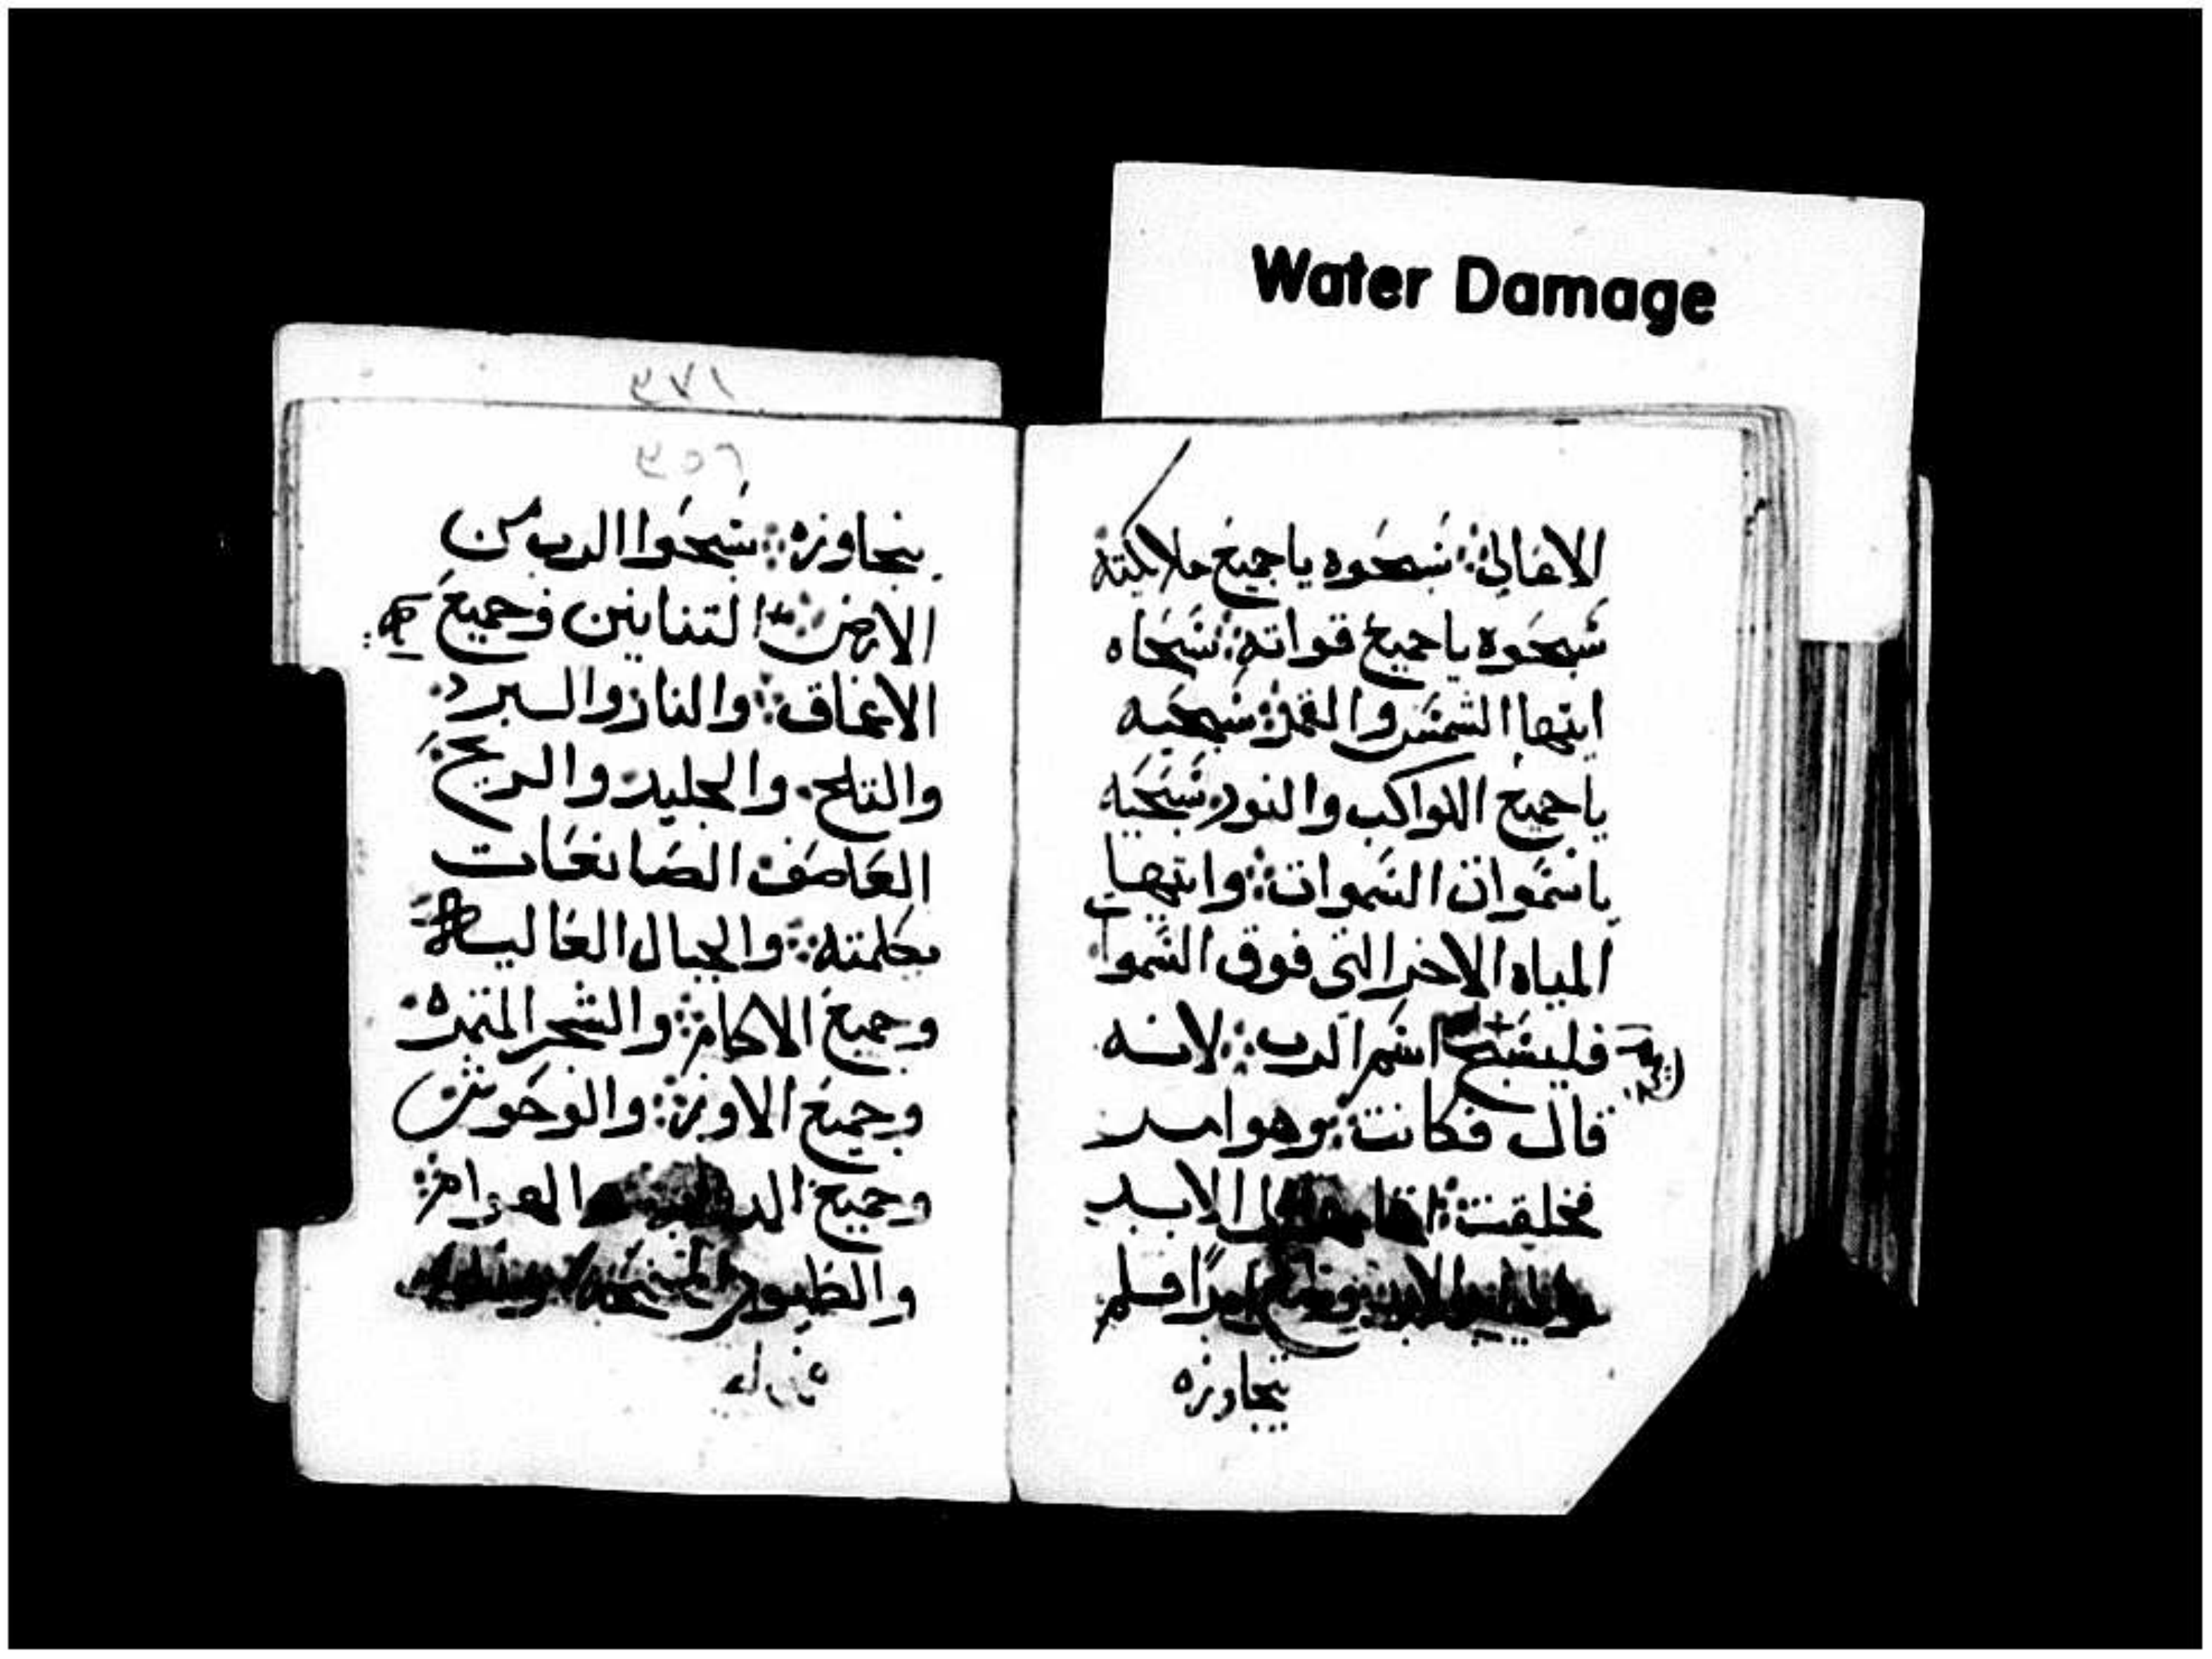 Water Damage
الاعالي سبحوه ياجميع ملايكته
سبحوه ياجميع قواته سبحاه
ايتها الشمس والقمر سبحيه
ياجميع الكواكب والنور سبحيه
ياسموات السموات وايتها
المياه الاخر التي فوق السموا
فليسبح اسم الرب لانه
قال فكانت وهو امر
فخلقت الابد
امرًا فلم
يتجاوزه
٣٧١
٣٥٦
يتجاوزه سبحوا الرب من
الارض التنانين وجميع
الاعماق والنار والبرد
والتلج والجليد والريح
العاصف الصانعات
كلمته والجبال العاليه
وجميع الاكام والشجر المتمره
وجميع الاورز والوحوش
وجميع الهوام
والطيور